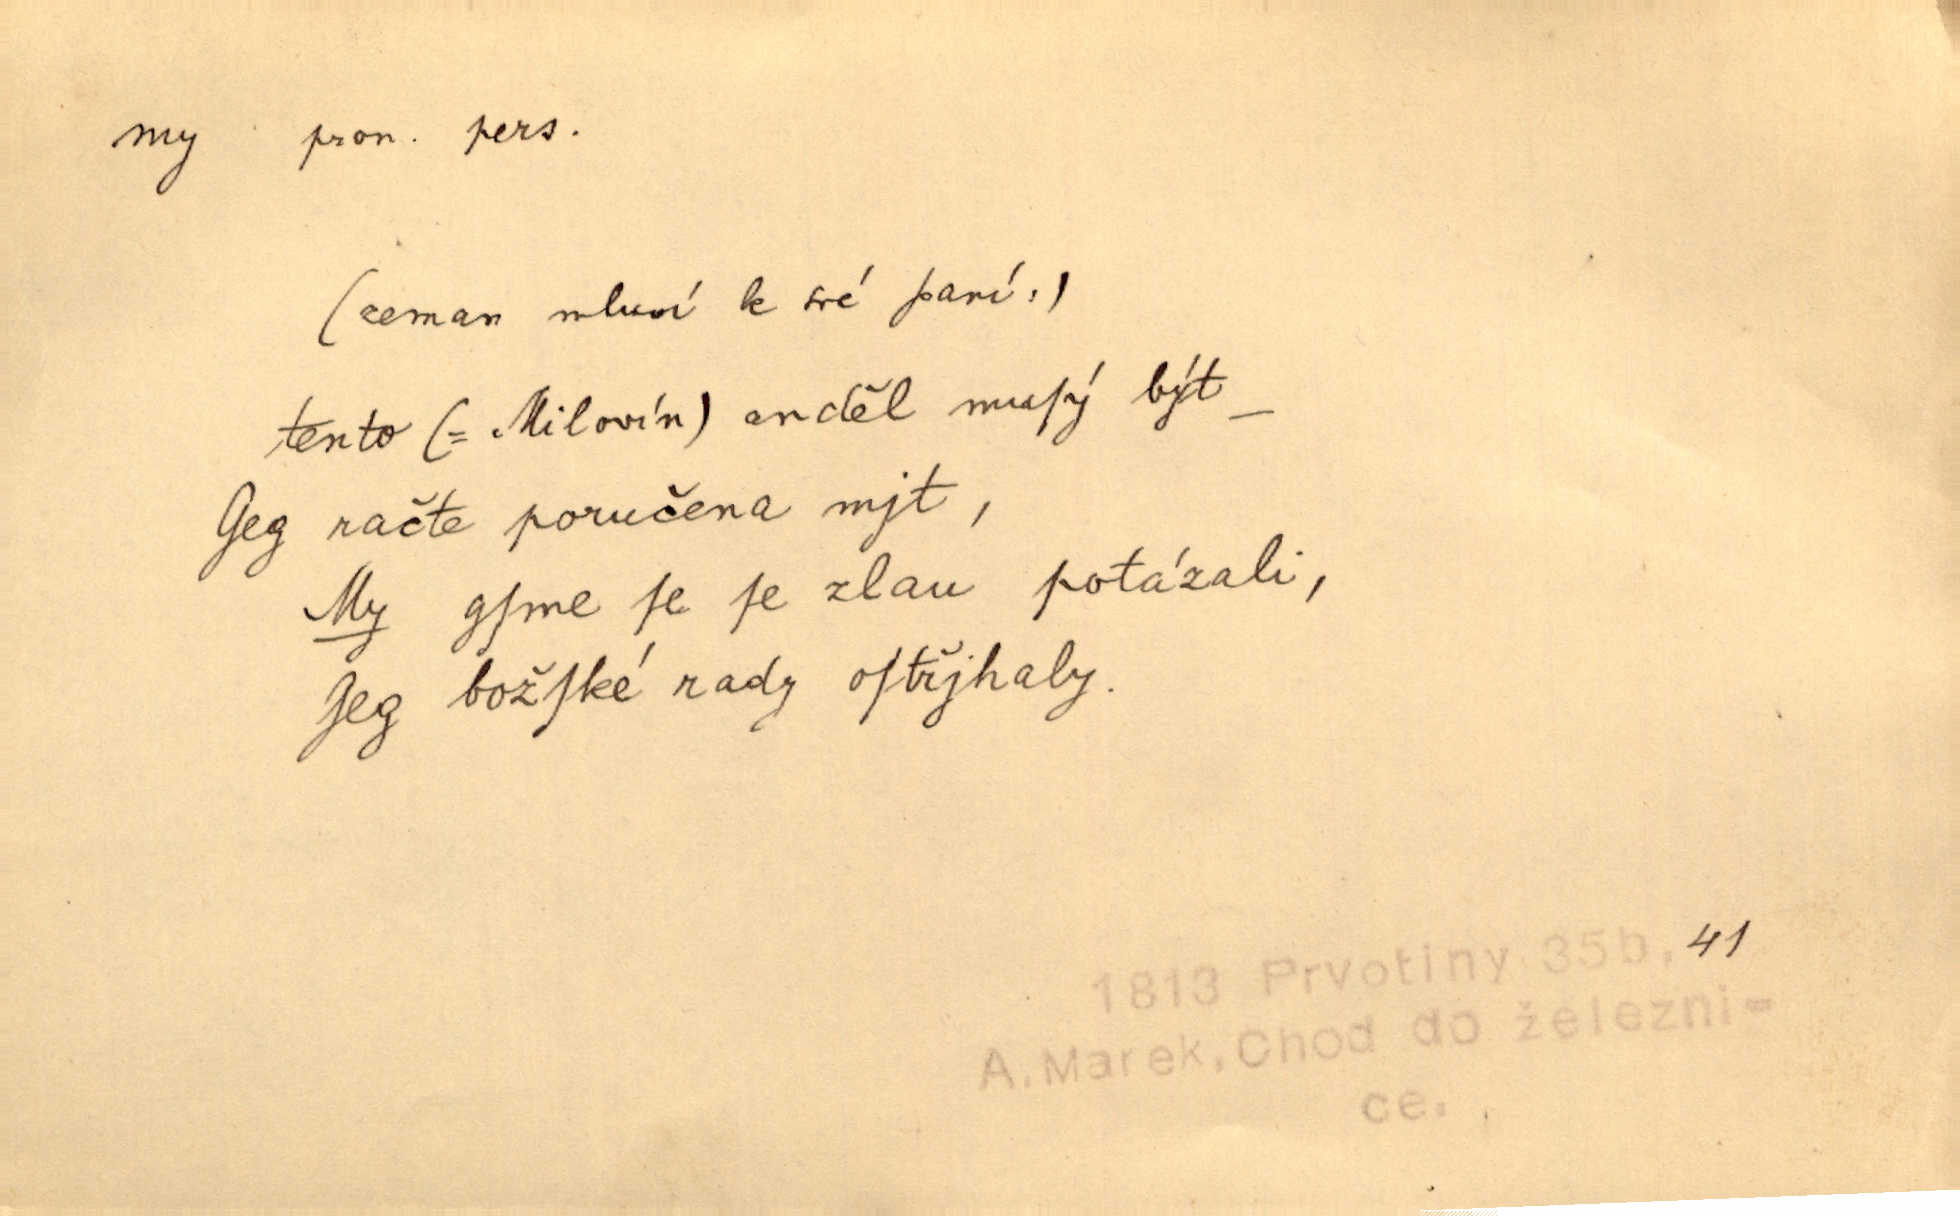 my pron. pers.
(zeman mluví k své paní:)
tento (= Milovín) anděl muſý být _
Geg račte poručena mjt,
My gſme ſe ſe zlau potázali,
Geg božſké rady oſtřjhaly.
1813 Prvotiny 35b, 41
A.Marek,Chod do železni=
ce.